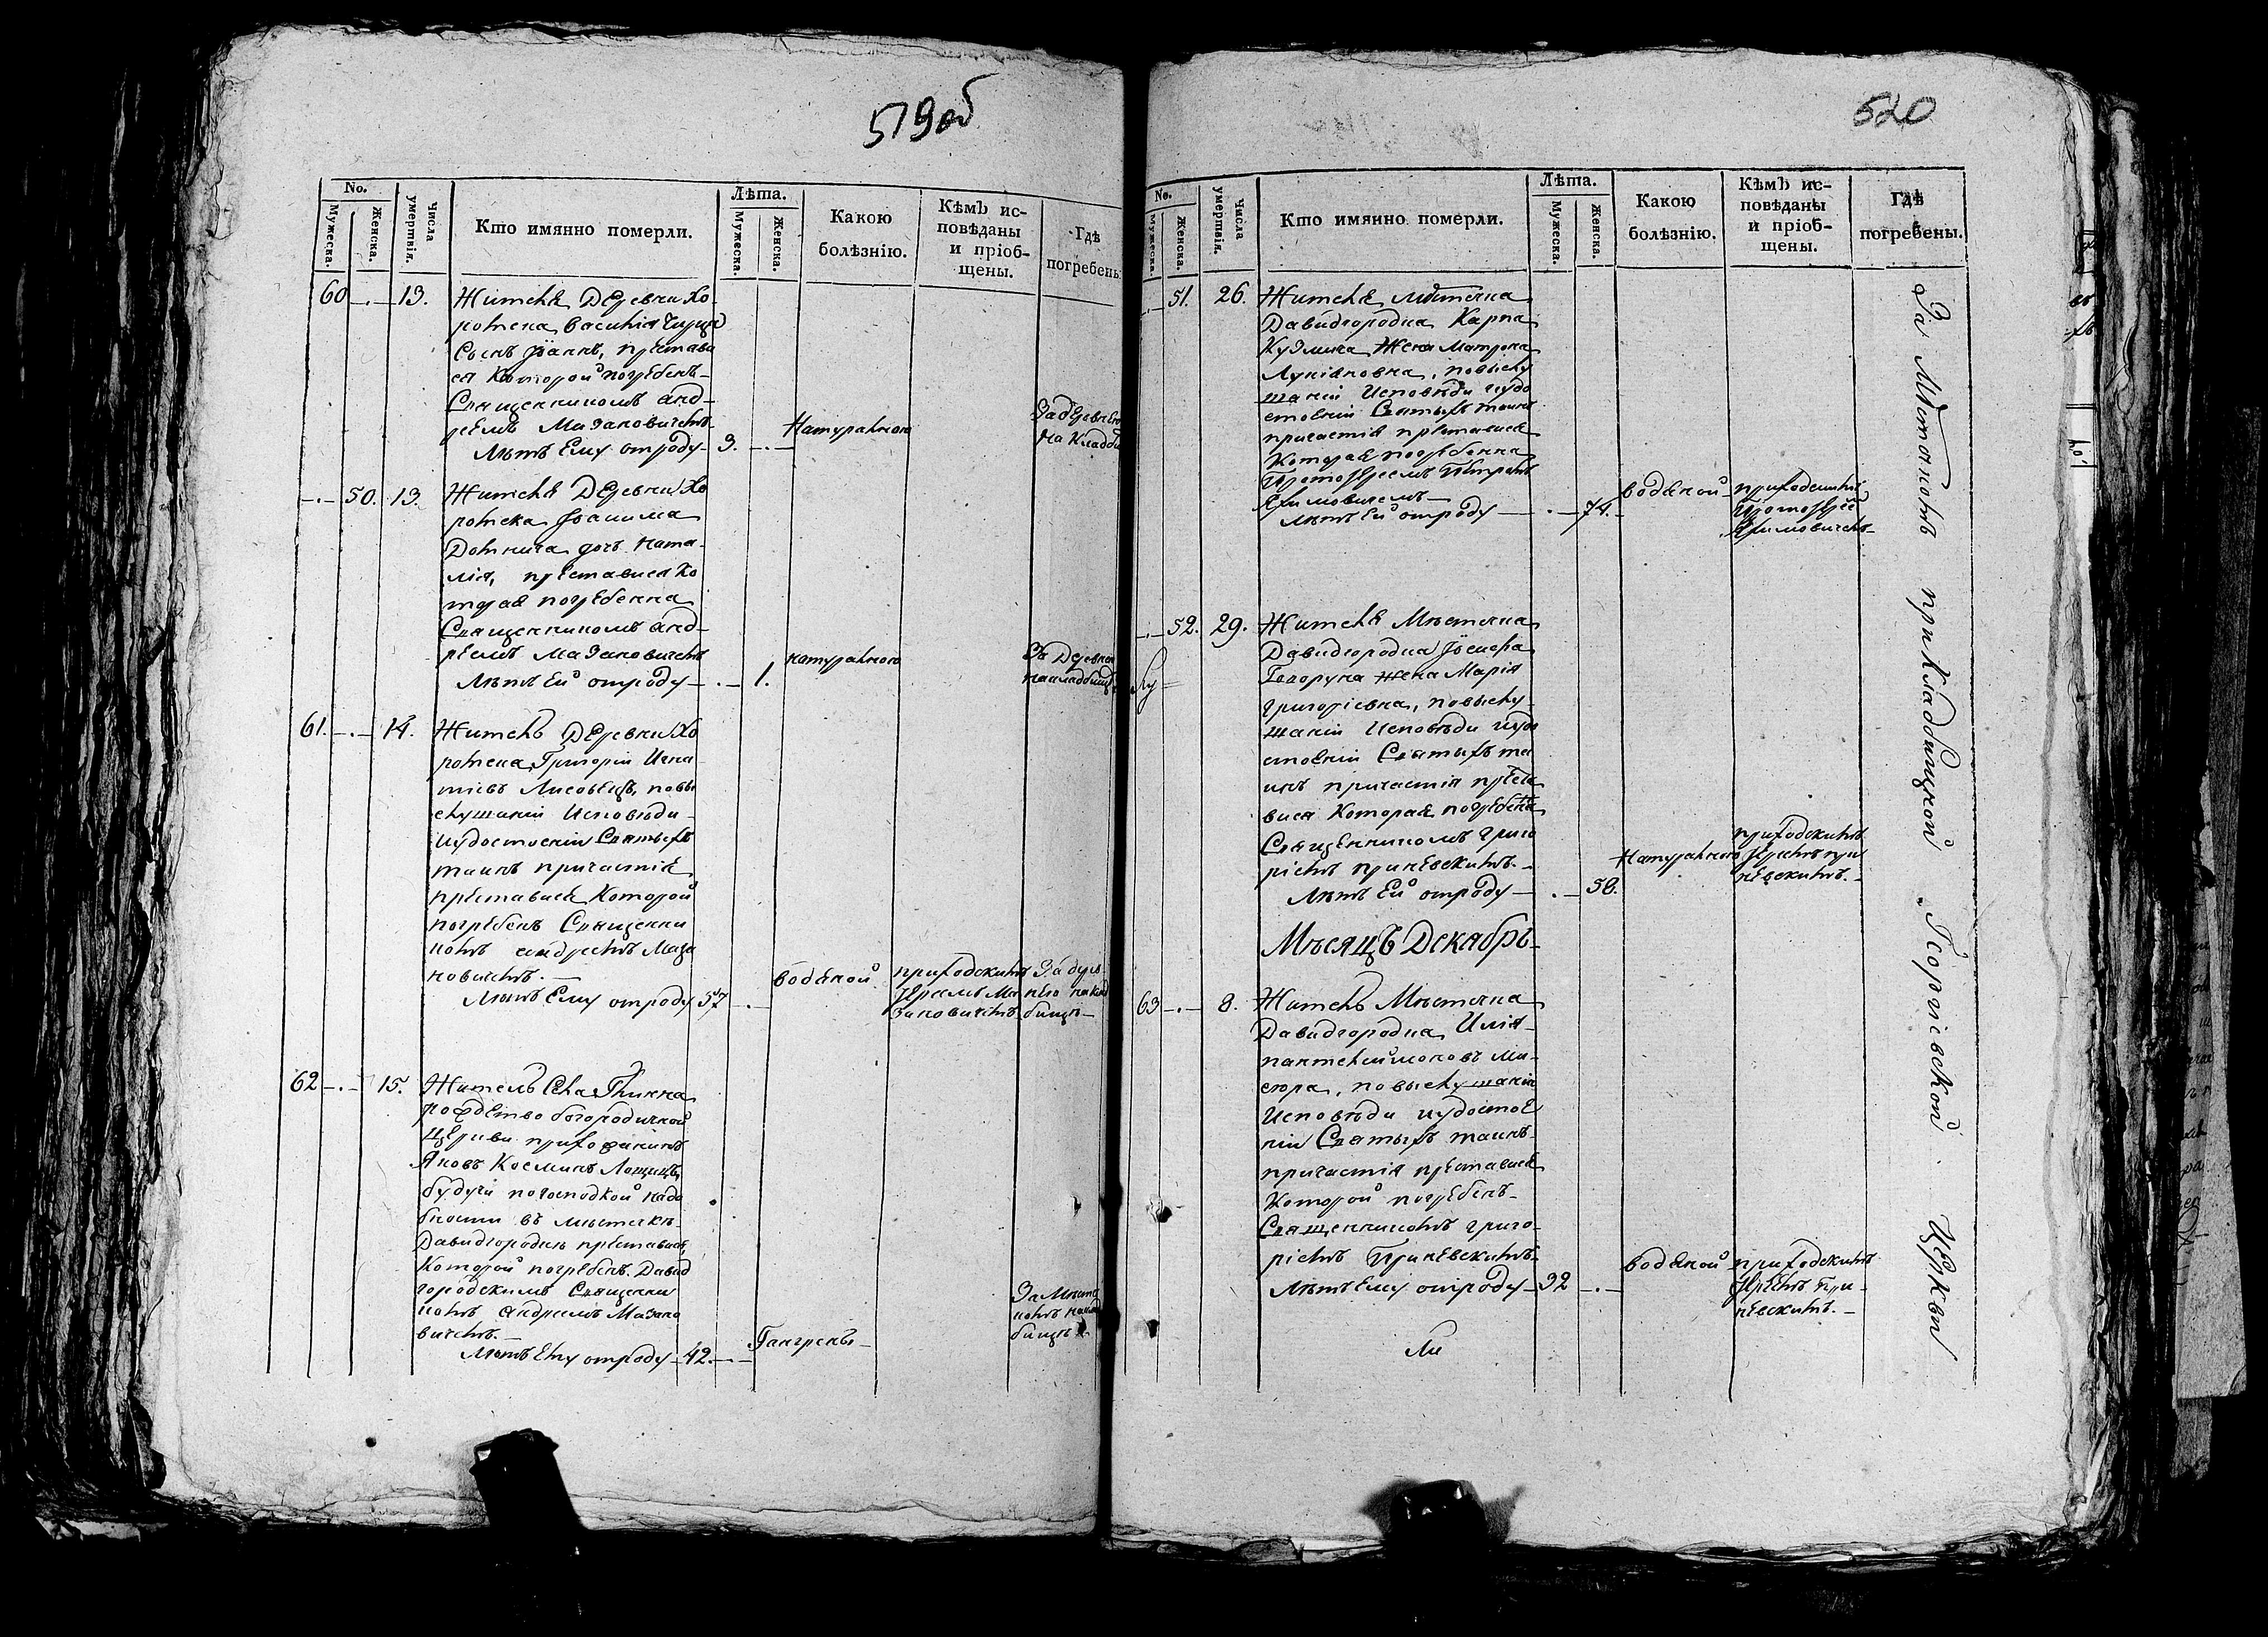 519об
No.
Мужеска.
Женска.
Числа умертвія.
Кто имянно померли.
Лѣта.
Мужеска.
Женска.
Какою
болѣзнію.
Кѣмъ ис-
повѣданы
и пріоб-
щены.
Гдѣ
погребены
60 13. Жителя Деревни Хо
ротска Василія
Сынъ Іоаннъ, престави
ся Которой погребенъ
Священникомъ Анд-
реемъ Мазановичемъ
Лѣтъ Ему отроду 3.
Натуралною
За деревнею
На кладби
50. 13. Жителя Деревни Хо
ротска
дочь Ната-
лія, преставися Ко
торая погребенна
Священникомъ Анд-
реемъ Мазановичемъ
Лѣтъ Ей отроду 1.
натуралною
За Деревнею
на кладбищѣ
61. 14. Житель Деревни Хо
ротска Григорій Игна
тіевъ Лисовецъ, повы
слушаніи Исповѣди
иудостоеніи Святыхъ
таинъ причастія
преставися Которой
погребенъ Священни
комъ Андреемъ Маза
новичемъ.
Лѣтъ Ему отроду 57
водяной
приходскимъ
Іереемъ Ма
зановичемъ
За дерев
нею на клад
бищѣ
62 15. Житель Села Глинна
рождество богородичной
Церкви прихожанинъ
Яковъ Косминъ Лощицъ,
будучи погосподской надо
бности въ мѣстечкѣ
Давидгородкѣ преставися,
Которой погребенъ Давид
городскимъ Священни
комъ Андреемъ Мазано
вичемъ.
Лѣтъ Ему отроду 42.
Гангрены
За Мѣстеч
комъ на клад
бищѣ
520
No.
Мужеска.
Женска.
Числа умертвія.
Кто имянно померли.
Лѣта.
Мужеска.
Женска.
Какою
болѣзнію.
Кѣмъ ис-
повѣданы
и пріоб-
щены.
Гдѣ
погребены.
51. 26. Жителя Мѣстечка
Давидгородка Карпа
Кузмича Жена Матрона
Лукіановна, повыслу
шаніи Исповѣди иудо
стоеніи Святыхъ таинъ
причастія преставися
Которая погребенна
Протоіереемъ Петромъ
Якимовичемъ
Лѣтъ Ей отроду 74.
водяной
приходскимъ
Протоіерее
Якимовичемъ
52. 29. Жителя Мѣстечка
Давидгородка Іосифа
жена Марія
Григоріевна, повыслу-
шаніи Исповѣди иудо
стоеніи Святыхъ та
инъ причастія преста
вися Которая погребена
Священникомъ Григо
ріемъ Приневскимъ.
Лѣтъ Ей отроду 58.
Натуралною
приходскимъ
Іереемъ При
невскимъ.
Мѣсяцъ Декабрь
63 8. Житель Мѣстечка
Давидгородка Илія
пантелеймоновъ Ми-
сюра, повыслушаніи
Исповѣди иудостое
ніи Святыхъ таинъ
причастія преставися
Которой погребенъ
Священникомъ Григо-
ріемъ Приневскимъ
Лѣтъ Ему отроду 32
водяной
приходскимъ
Іереемъ При-
невскимъ.
Ли
За Мѣстечкомъ при Кладбищной Георгіевской Церкви